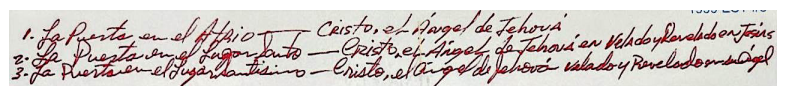 1. La Puerta en el Atrio — Cristo, el Ángel de Jehová
2. La Puesta en el Lugar Santo — Cristo, el Ángel de Jehová en Velado y Revelado en Jesús
3. La Puerta en el Lugar Santísimo — Cristo, el Ángel de Jehová Velado y Revelado en su Ángel